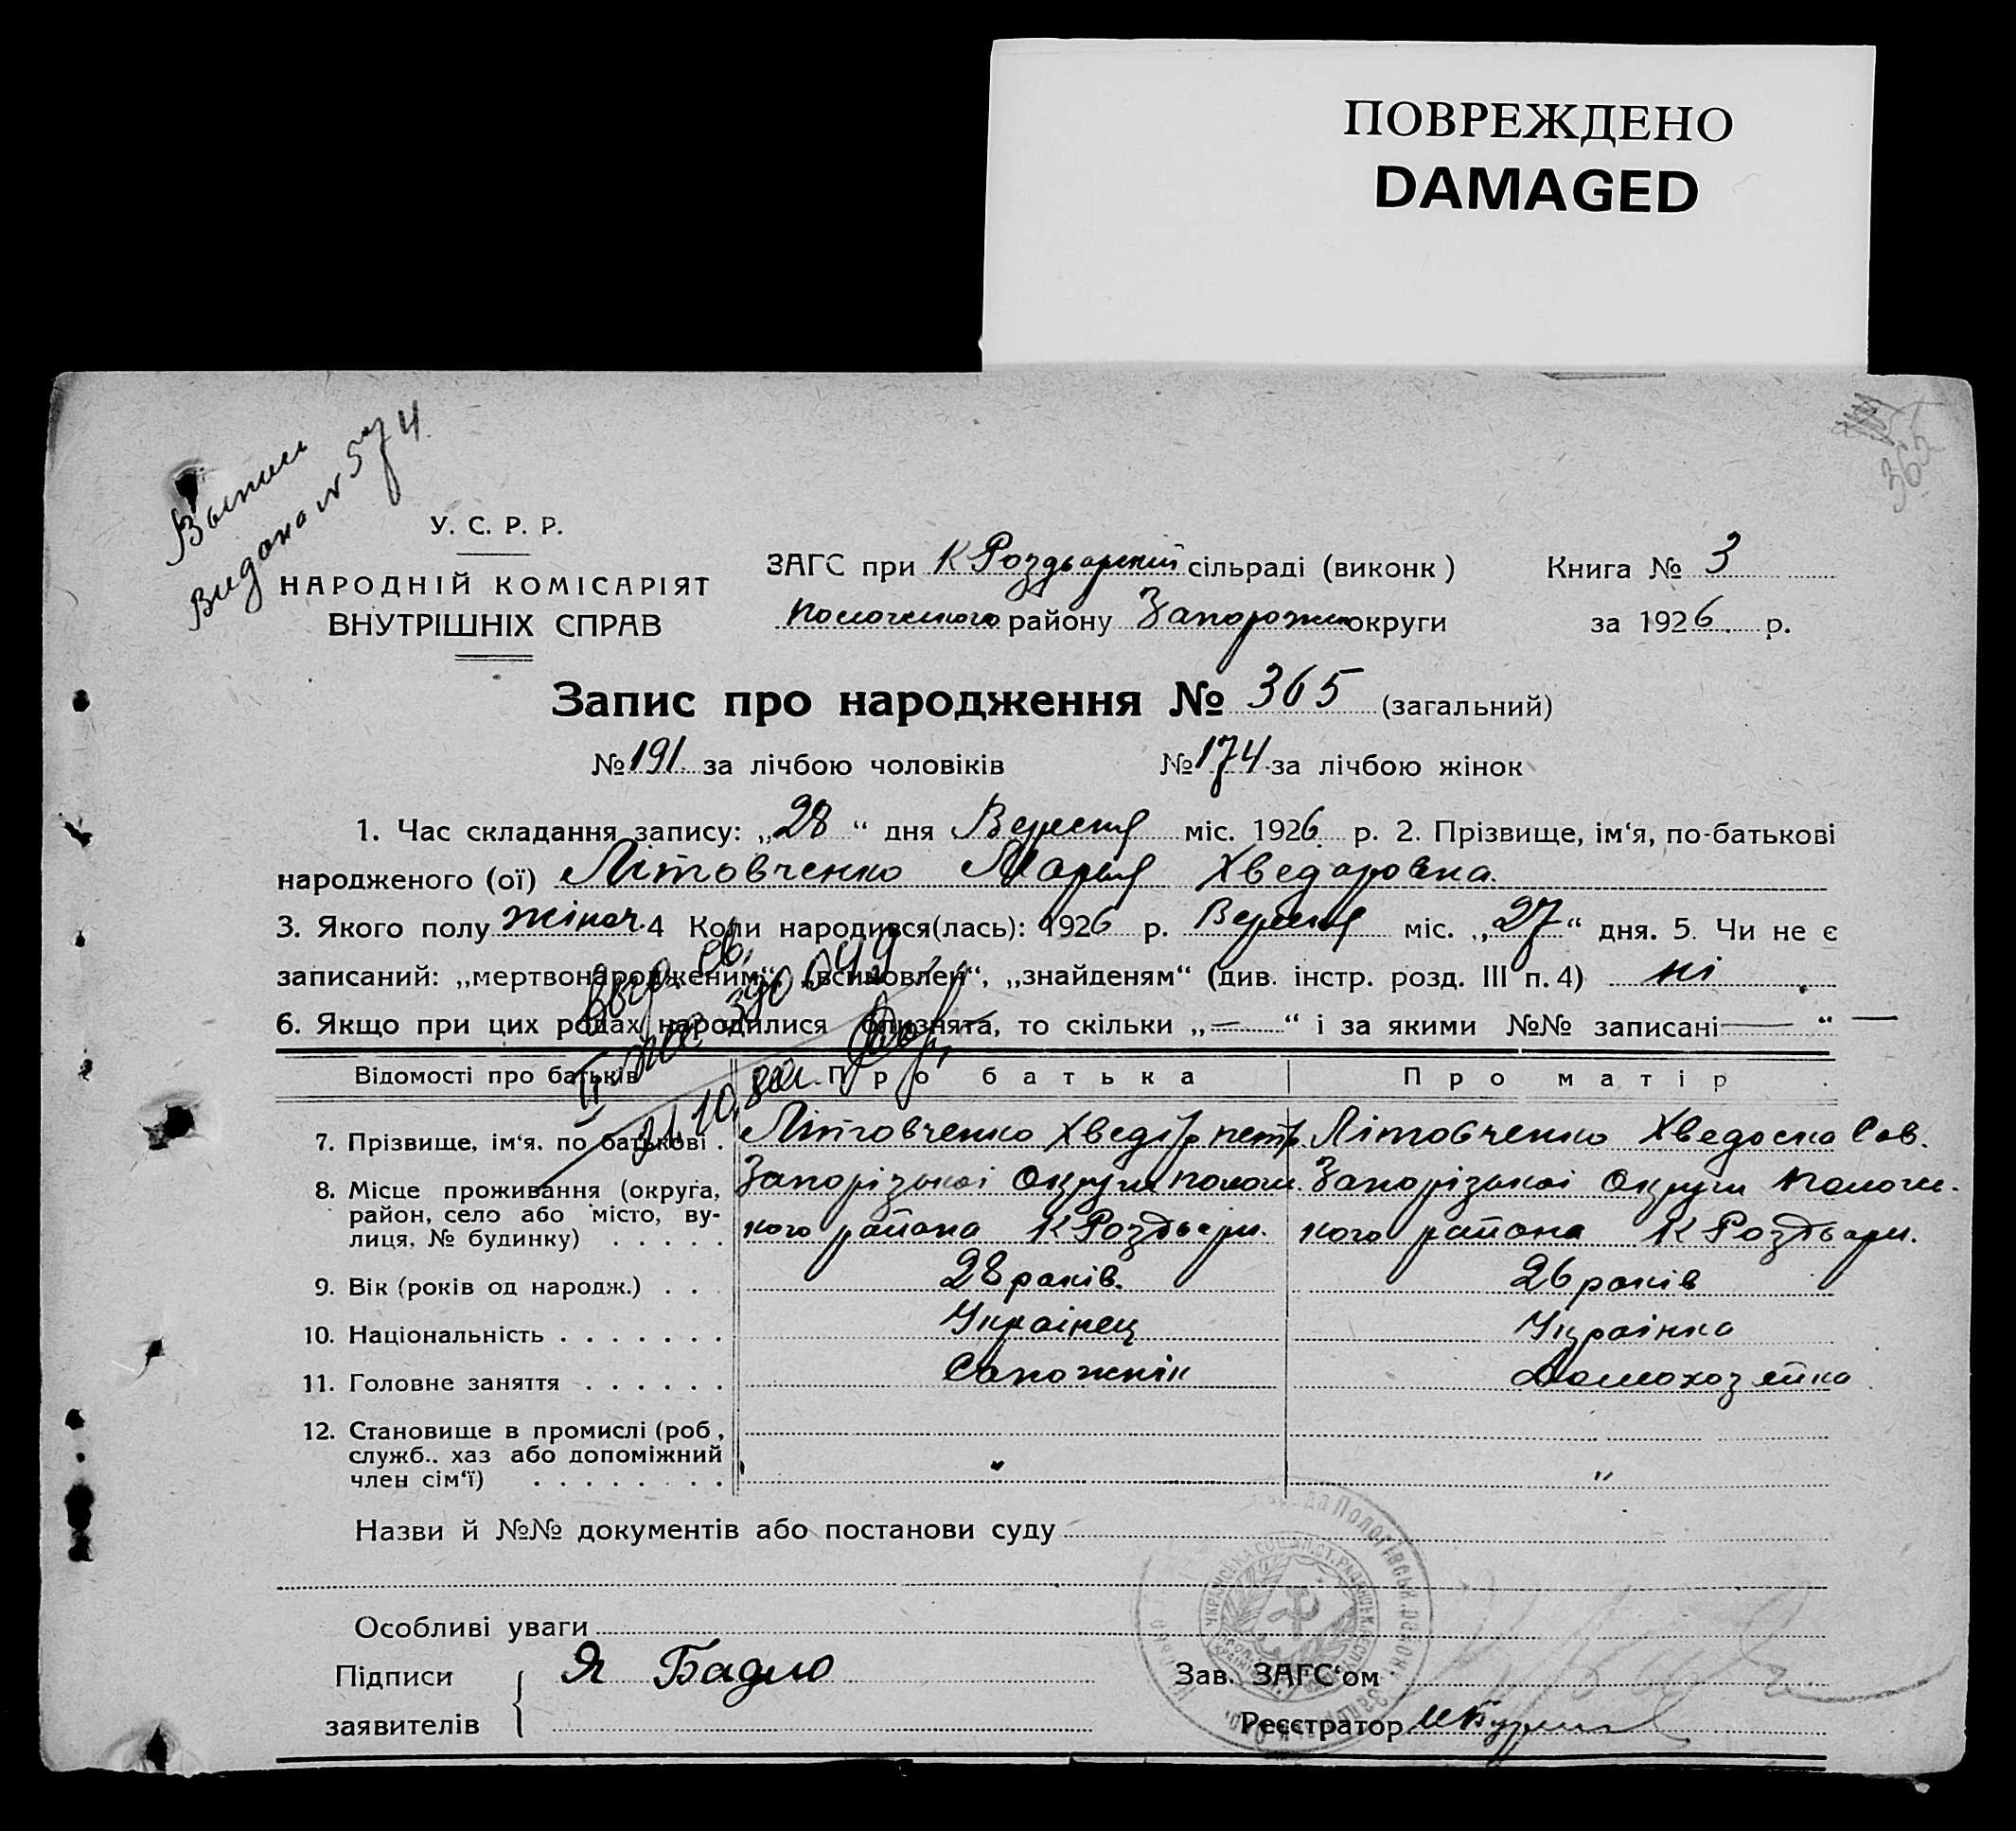 ПОВРЕЖДЕНО
DAMAGED
365
Выпись
Видана № 574
У. С. Р. Р.
НАРОДНІЙ КОМІСАРІЯТ
ВНУТРІШНІХ СПРАВ
ЗАГС при К Роздьорскій сільраді (виконк)
Книга № 3
району Запорожск округи
за 1926 р.
Запис про народження № 365 (загальний)
№ 191 за лічбою чоловіків № 174 за лічбою жінок
1. Час складання запису: „28“ дня Вересня міс. 1926 р. 2. Прізвище, ім‘я, по-батькові
народженого (ої) Літовченко Марья Хведоровна
3. Якого полу жіноч. 4 Коли народився(лась): 1926 р. Вересня міс. „27“ дня. 5. Чи не є
записаний: „мертвонародженим“, „всиновлен“, „знайденям“ (див. інстр. розд. III п. 4) ні
6. Якщо при цих родах народилися близнята, то скільки „—“ і за якими №№ записані — “ —
Выд. св.
390049
21.10.
Відомості про батьків Про батька Про матір
7. Прізвище, ім‘я, по батькові . Літовченко Хведір петр. Літовченко Хведоска Сав.
8. Місце проживання (округа, район, село або місто, вулиця, № будинку) . . . . .
Запорізькоі Округи пологи. Запорізькоі Округи пологи-
кого района К Роздьори. кого района К Роздьори.
9. Вік (років од народж.) . . 28 років. 26 років
10. Національність . . . . . . . Украінец Украінка
11. Головне заняття . . . . . . Сапожнік Домохозяйка
12. Становище в промислі (роб, служб.. хаз або допоміжний член сім‘ї) . . . . . . . . " "
Назви й №№ документів або постанови суду
Особливі уваги
Підписи
заявителів
Я Бадло
Зав. ЗАГС‘ом
Реєстратор